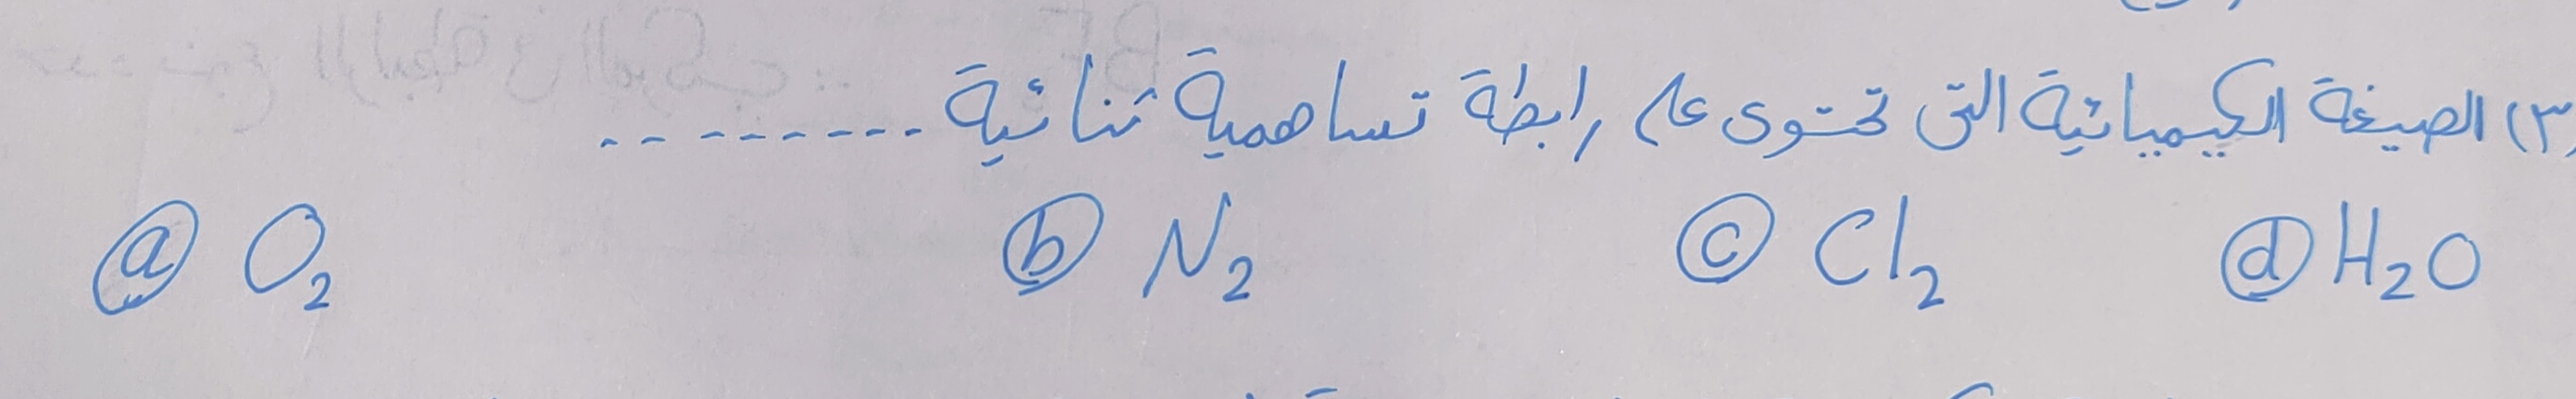 (٣) الصيغة الكيميائية التى تحتوى على رابطة تساهمية ثنائية ---------
ⓐ O₂ ⓑ N₂ ⓒ Cl₂ ⓓ H₂O